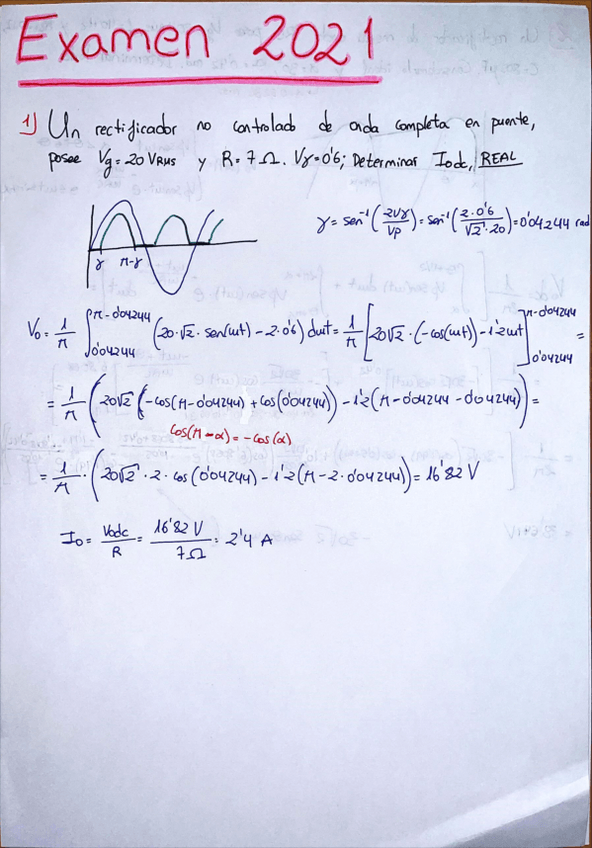 Examen 2021
1) Un rectificador no controlado de onda completa en puente,
posee Vg = 20 VRMS y R = 7 Ω. Vγ = 0'6; Determinar Iodc, REAL
γ = sen⁻¹(2Vγ/Vp) = sen⁻¹(2·0'6/√2·20) = 0'04244 rad
γ π-γ
V₀ = 1/π ∫_{0'04244}^{π-0'04244} (20·√2·sen(ωt) - 2·0'6) dωt = 1/π [20√2·(-cos(ωt)) - 1'2ωt]_{0'04244}^{π-0'04244} =
= 1/π (20√2 (-cos(π-0'04244) + cos(0'04244)) - 1'2(π-0'04244-0'04244)) =
cos(π-α) = -cos(α)
= 1/π · (20√2 · 2 · cos(0'04244) - 1'2(π-2·0'04244)) = 16'82 V
I₀ = Vodc/R = 16'82 V/7Ω = 2'4 A